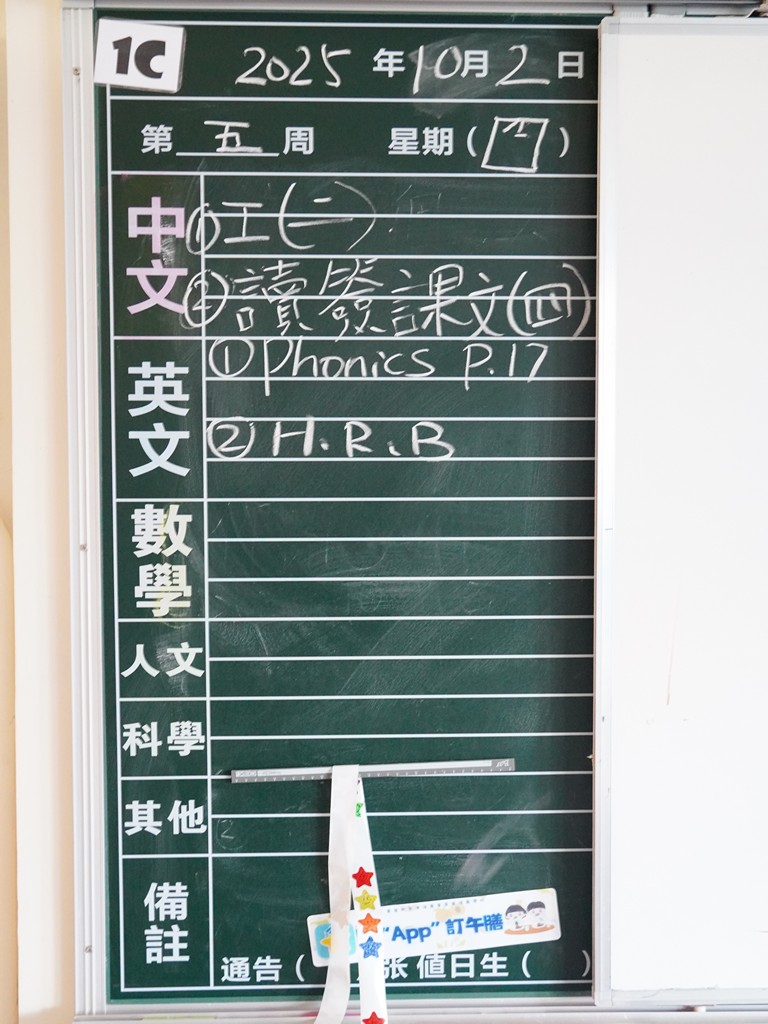 1C
2025 年 10月 2 日
第 五 周 星期 ( 四 )
中文
① 工(二)
② 讀簽課文(四)
英文
① Phonics P.17
② H.R.B
數學
人文
科學
其他
備註
"App" 訂午膳
通告 ( 張 值日生 ( )